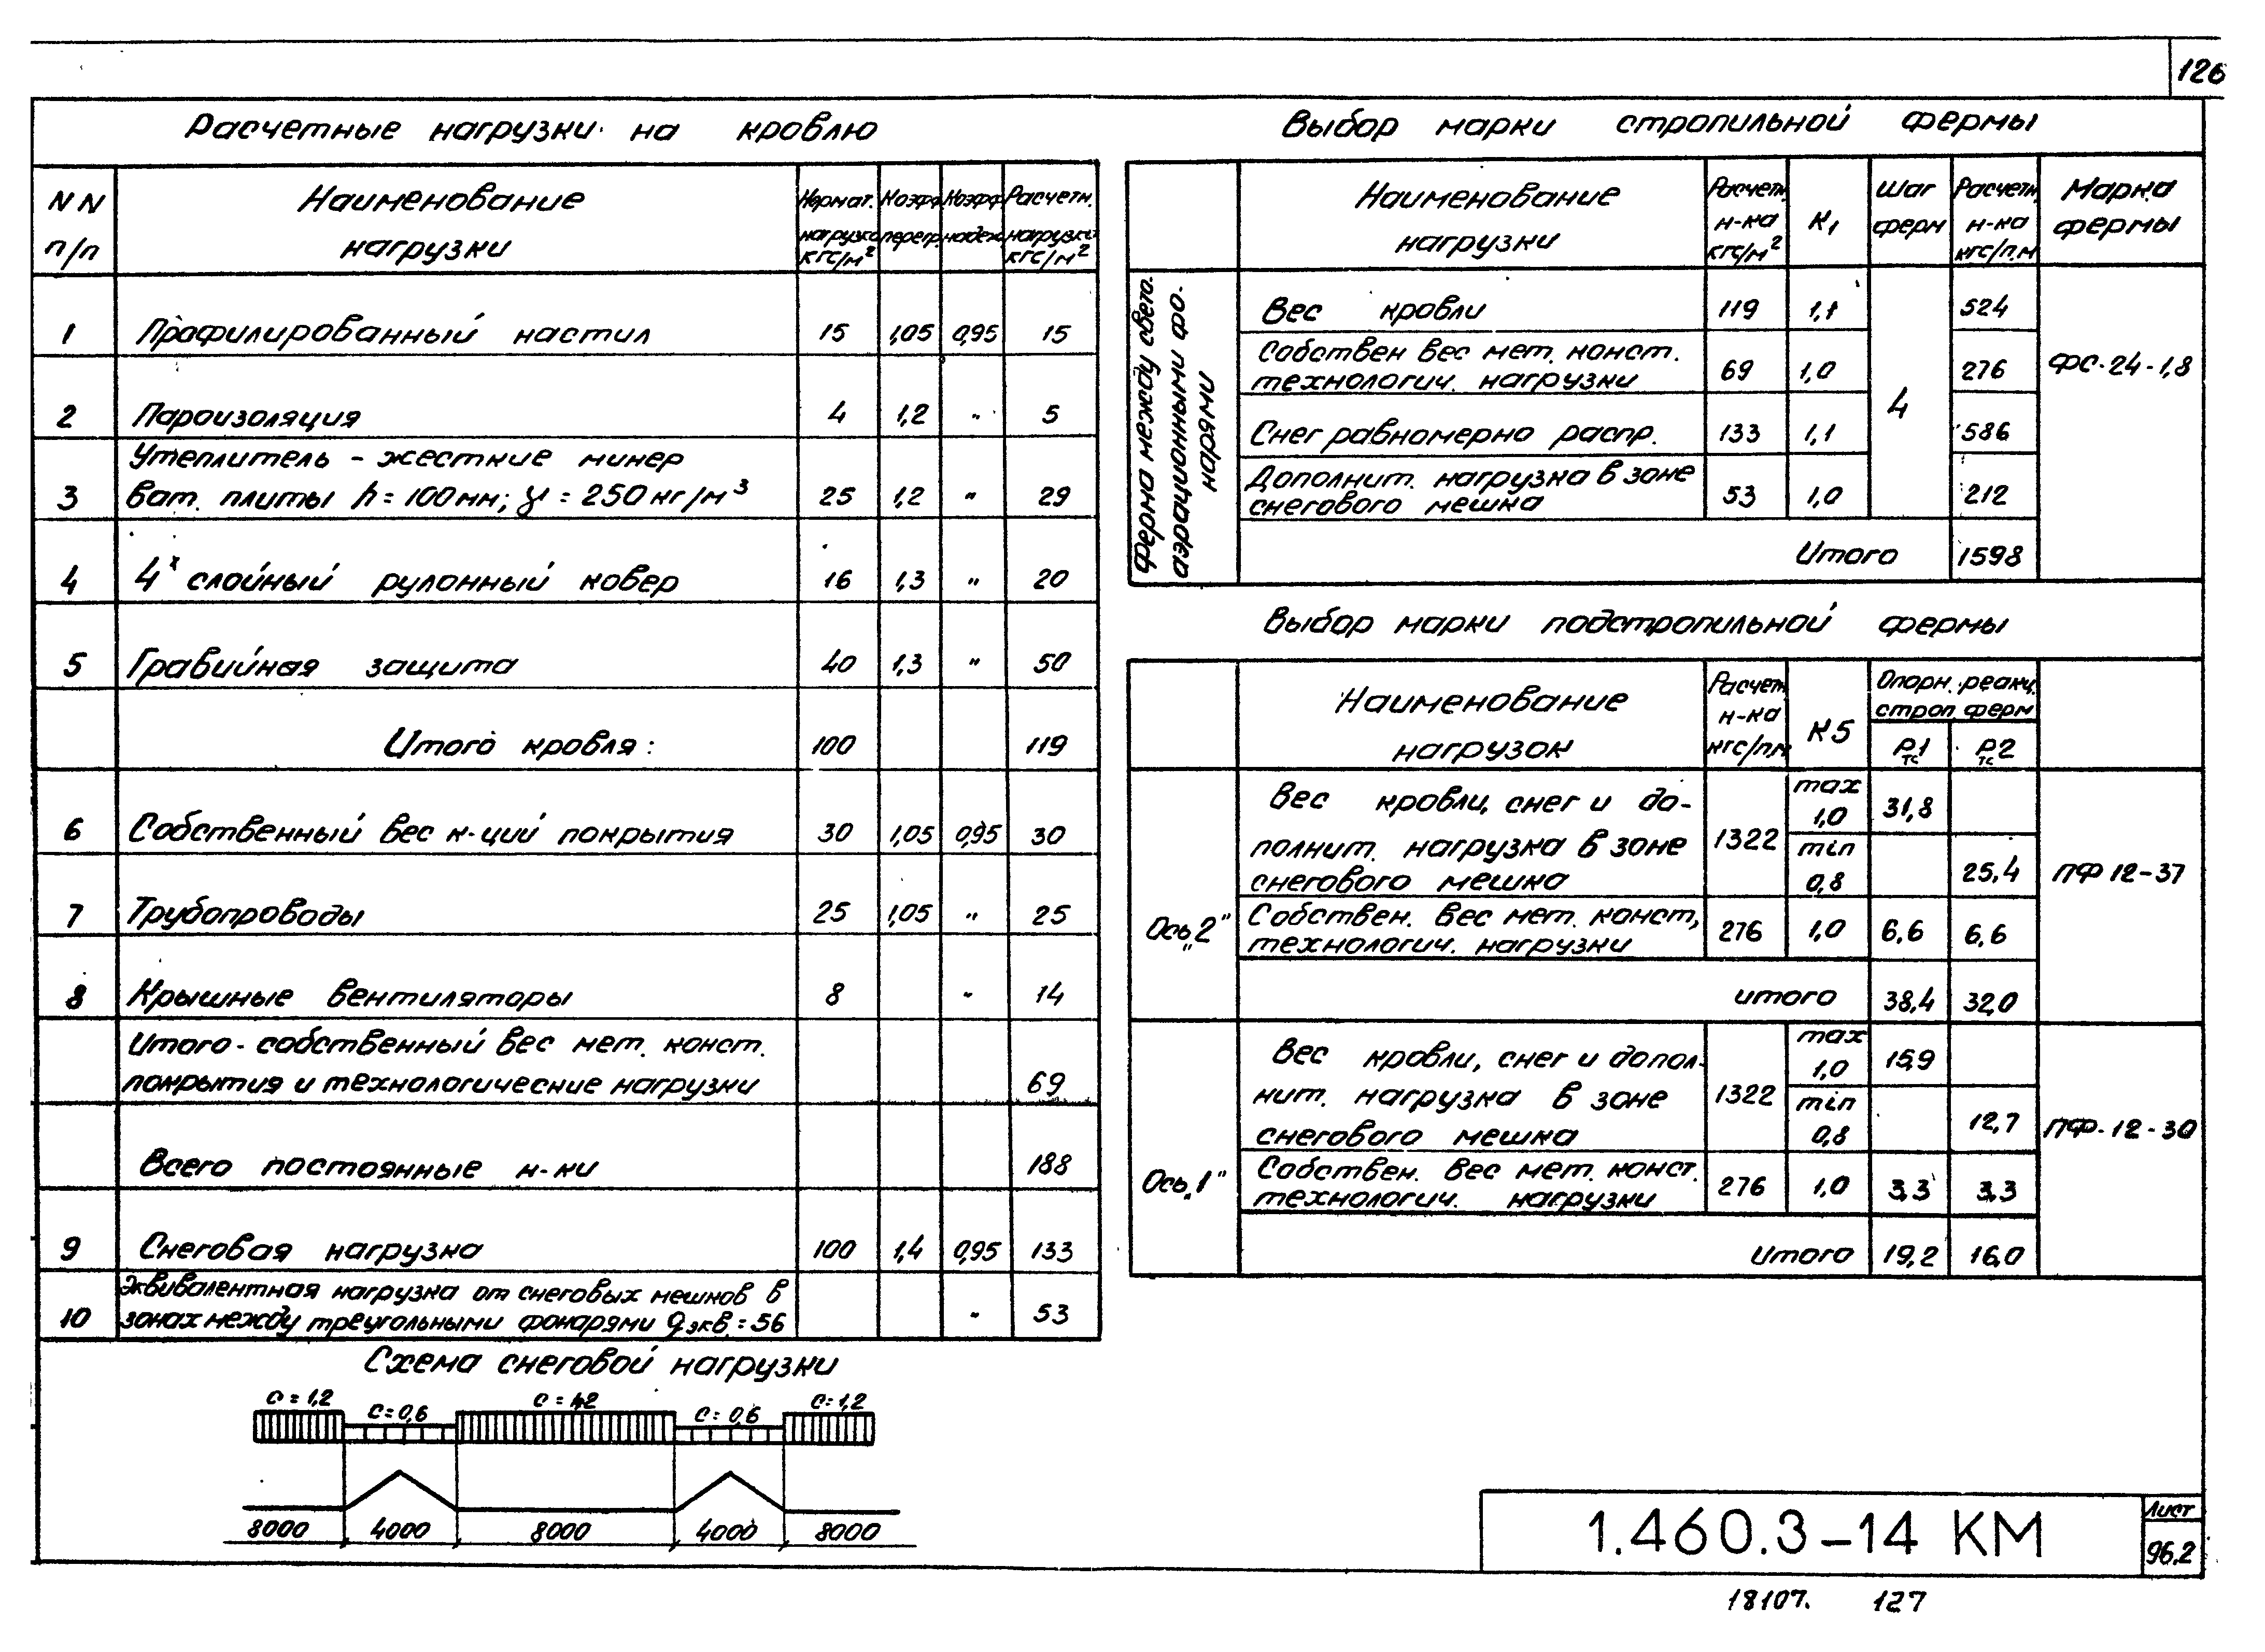 126
Расчетные нагрузки на кровлю
NN п/п
Наименование нагрузки
Нормат. нагрузка кгс/м²
Коэфф. перегр.
Коэфф. надеж.
Расчетн. нагрузка кгс/м²
1 Профилированный настил 15 1,05 0,95 15
2 Пароизоляция 4 1,2 " 5
Утеплитель - жесткие минер
3 ват. плиты h=100мм; γ=250кг/м³ 25 1,2 " 29
4 4х слойный рулонный ковер 16 1,3 " 20
5 Гравийная защита 40 1,3 " 50
Итого кровля: 100 119
6 Собственный вес к-ций покрытия 30 1,05 0,95 30
7 Трубопроводы 25 1,05 " 25
8 Крышные вентиляторы 8 " 14
Итого - собственный вес мет. конст.
покрытия и технологические нагрузки 69
Всего постоянные н-ки 188
9 Снеговая нагрузка 100 1,4 0,95 133
Эквивалентная нагрузка от снеговых мешков в
10 зонах между треугольными фонарями qэкв.=56 " 53
Схема снеговой нагрузки
c=1,2 c=0,6 c=1,2 c=0,6 c=1,2
8000 4000 8000 4000 8000
Выбор марки стропильной фермы
Наименование нагрузки
Расчетн. н-ка кгс/м²
К1
Шаг ферм
Расчетн. н-ка кгс/п.м
Марка фермы
Ферма между свето-
аэрационными фо-
нарями
Вес кровли 119 1,1 524
Собствен вес мет. конст.
технологич. нагрузки 69 1,0 276
4
ФС-24-1,8
Снег равномерно распр. 133 1,1 586
Дополнит. нагрузка в зоне
снегового мешка 53 1,0 212
Итого 1598
Выбор марки подстропильной фермы
Наименование нагрузок
Расчет. н-ка кгс/пм
К5
Опорн. реакц. строп. ферм
Р1 тс
Р2 тс
Ось „2"
Вес кровли, снег и до-
полнит. нагрузка в зоне
снегового мешка
1322
max 1,0 31,8
min 0,8 25,4
ПФ 12-37
Собствен. вес мет. конст,
технологич. нагрузки 276 1,0 6,6 6,6
итого 38,4 32,0
Ось „1"
Вес кровли, снег и допол-
нит. нагрузка в зоне
снегового мешка
1322
max 1,0 15,9
min 0,8 12,7
ПФ-12-30
Собствен. вес мет. конст.
технологич. нагрузки 276 1,0 3,3 3,3
Итого 19,2 16,0
1.460.3-14 КМ
Лист
96.2
18107. 127